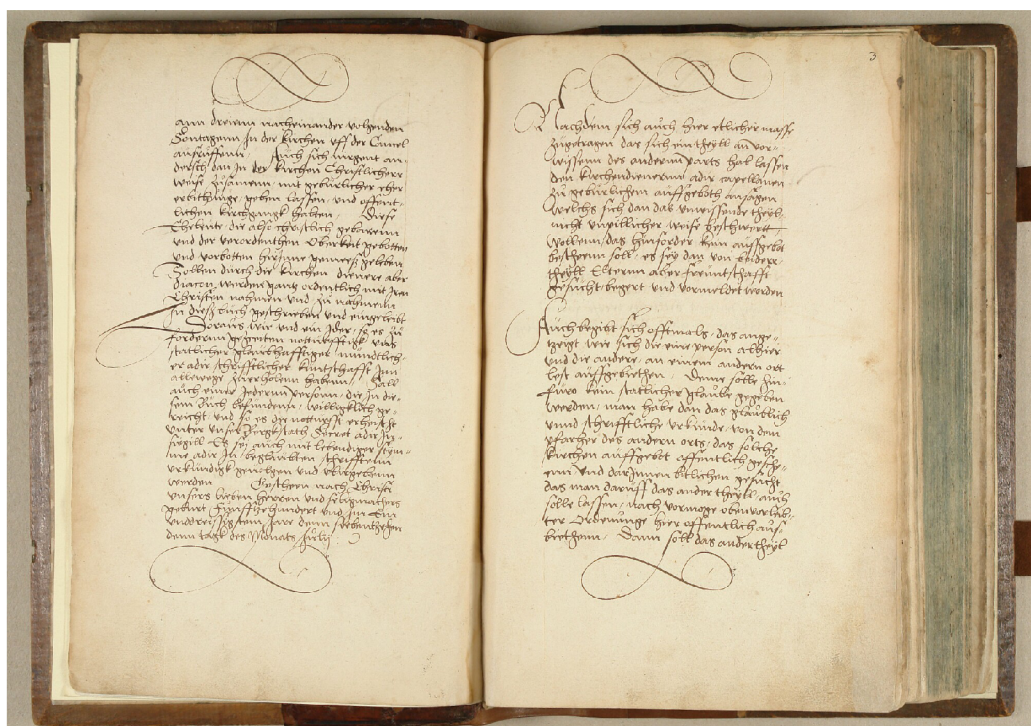 ann dreienn nacheinander volgenden
Sontagenn In der kirchen uff der Cantzel
auffruffenn. Auch sich nirgent an-
dersch dan In der kirchen Christlicherr
weise zusamenn mit geburlicher eher
erbithunge geben lassen, und offent-
lichen kirchgangk haben. Diese
Eheleute die also christlich gebarenn
und der verordenthen Oberkeit gebotten
und vorbotten hirinne gemeeß geleben
Sollen durch die kirchen dienere aber
diacon, werden gantz ordentlich mit Iren
Christen nahmen und zu nahmenn
In dieß buch geschrieben und eingeleibt
Doraus wir und ein Ider, so es zu
fordernn notturfftigk, vnd
statlicher glaubhafftiger mundtlich-
er adir schrifftlicher kuntschafft Inn
allewege zuerholenn habenn, Sall
auch einer Iedernn personn, die In die-
sem Buch befundenn, williglich ge-
reicht und so es die notturfft erheischt
unter unser Bergkstatt Secret adir In-
siegill Es sei auch mit lebendiger stym-
me adir In beglaubten schrifftenn
urkundigk genolgen und
werden. Geschenn nach Christi
unsers lieben herren und seligmachers
geburt Funffzehundert und im Ein
unddreissigstenn Jare denn siebentzehen
denn tagk des Monats Julij
3
Nachdem sich auch hier etlicher masse
zugetragen das sich ein theyll an vor-
wissenn des andernn parts hat lassen
den kirchendienernn adir capellanen
zu geburlichem auffgeboth ansagen
welchs sich dan das unwissende theyl
nicht unbillicher weise beschwertt
Wollenn, das hinforder kein auffgebot
bescheenn soll, es sey dan von beider
theyll Elternn aber freuntschafft
gesucht begert und vormeldet werden
Auch begibt sich offtmals, das ange-
tzeigt wie sich die eine person alhier
und die andere, an einem andern ort
lest auffgebiethen. Deme solle hin-
furo kein statlicher glaube gegeben
werden, man habe dan das glaublich
unnd schrifftliche urkunde, von dem
pfarher des andern orts, das solche
kirchen auffgebot offentlich gesche-
enn und darinnen bitlichen gesucht
das man daruff das ander theyll auch
solle lassen, nach vormoge obenvorleib-
ter Ordenunge hier offentlich auf-
biethenn. Dann soll das ander theyl